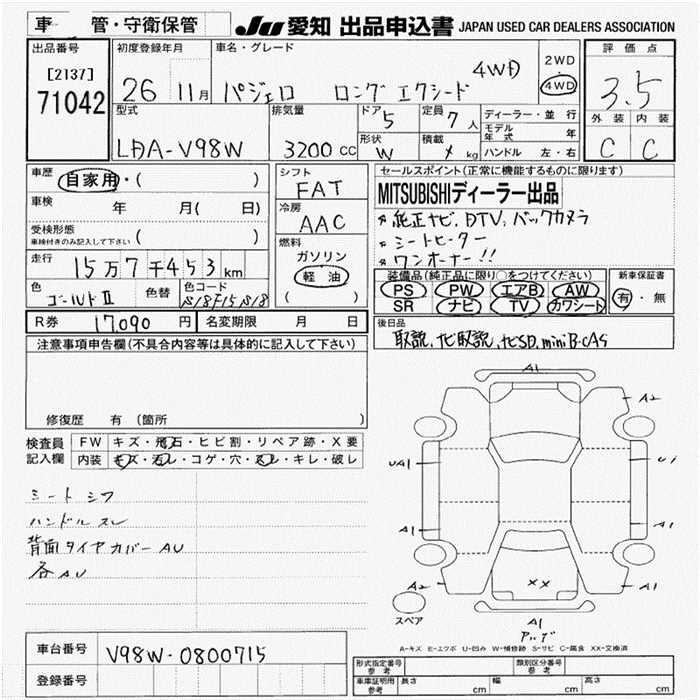 車 管・守衛保管
JU 愛知 出品申込書 JAPAN USED CAR DEALERS ASSOCIATION
出品番号
[2137]
71042
初度登録年月
26 11月
車名・グレード
パジェロ ロング エクシード 4WD
2WD
4WD
評価点
3.5
外装 内装
C C
型式
LDA-V98W
排気量
3200 cc
ドア
5
定員
7 人
形状
W
積載
kg
ディーラー・並行
モデル年式 年
ハンドル 左・右
車歴
自家用・( )
車検
年 月( 日)
受検形態
車検付きのみ記入して下さい ( )
走行
15万7千453km
色
ゴールドII
色替
色コード
シフト
FAT
冷房
AAC
燃料
ガソリン
軽油
( )
セールスポイント(正常に機能するものに限ります)
MITSUBISHIディーラー出品
純正ナビ、DTV、バックカメラ
シートヒーター
ワンオーナー!!
装備品(純正品に限り○をつけてください)
PS PW エアB AW
SR ナビ TV カワシート
新車保証書
有・無
R券 17,090 円
名変期限 月 日
後日品
取説、ナビ取説、ナビSD、miniB-CAS
注意事項申告欄(不具合内容等は具体的に記入して下さい)
修復歴 有 (箇所 )
検査員記入欄
FW キズ・飛石・ヒビ割・リペア跡・X要
内装 キズ・汚レ・コゲ・穴・スレ・キレ・破レ
シート シワ
ハンドル スレ
背面タイヤカバー AU
各AU
A1
A2
UA1
A1
A1
A2
A1
XX
A1
スペア
A-キズ E-エクボ U-凹み W-補修跡 S-サビ C-腐食 XX-交換済
車台番号
V98W-0800715
登録番号
形式指定番号
参考
類別区分番号
車庫証明用
参考
長さ cm
幅 cm
高さ cm